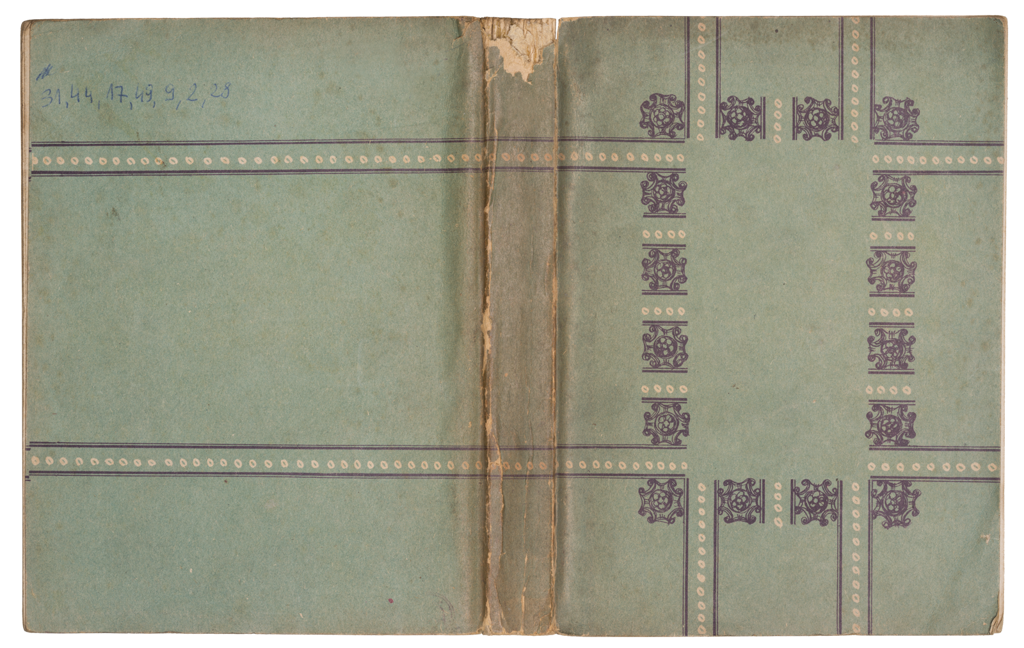 31, 44, 17, 49, 9, 2, 28